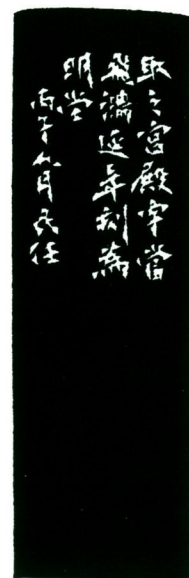 取之宮殿當
飛鴻延年刻為
明堂
丙子月任